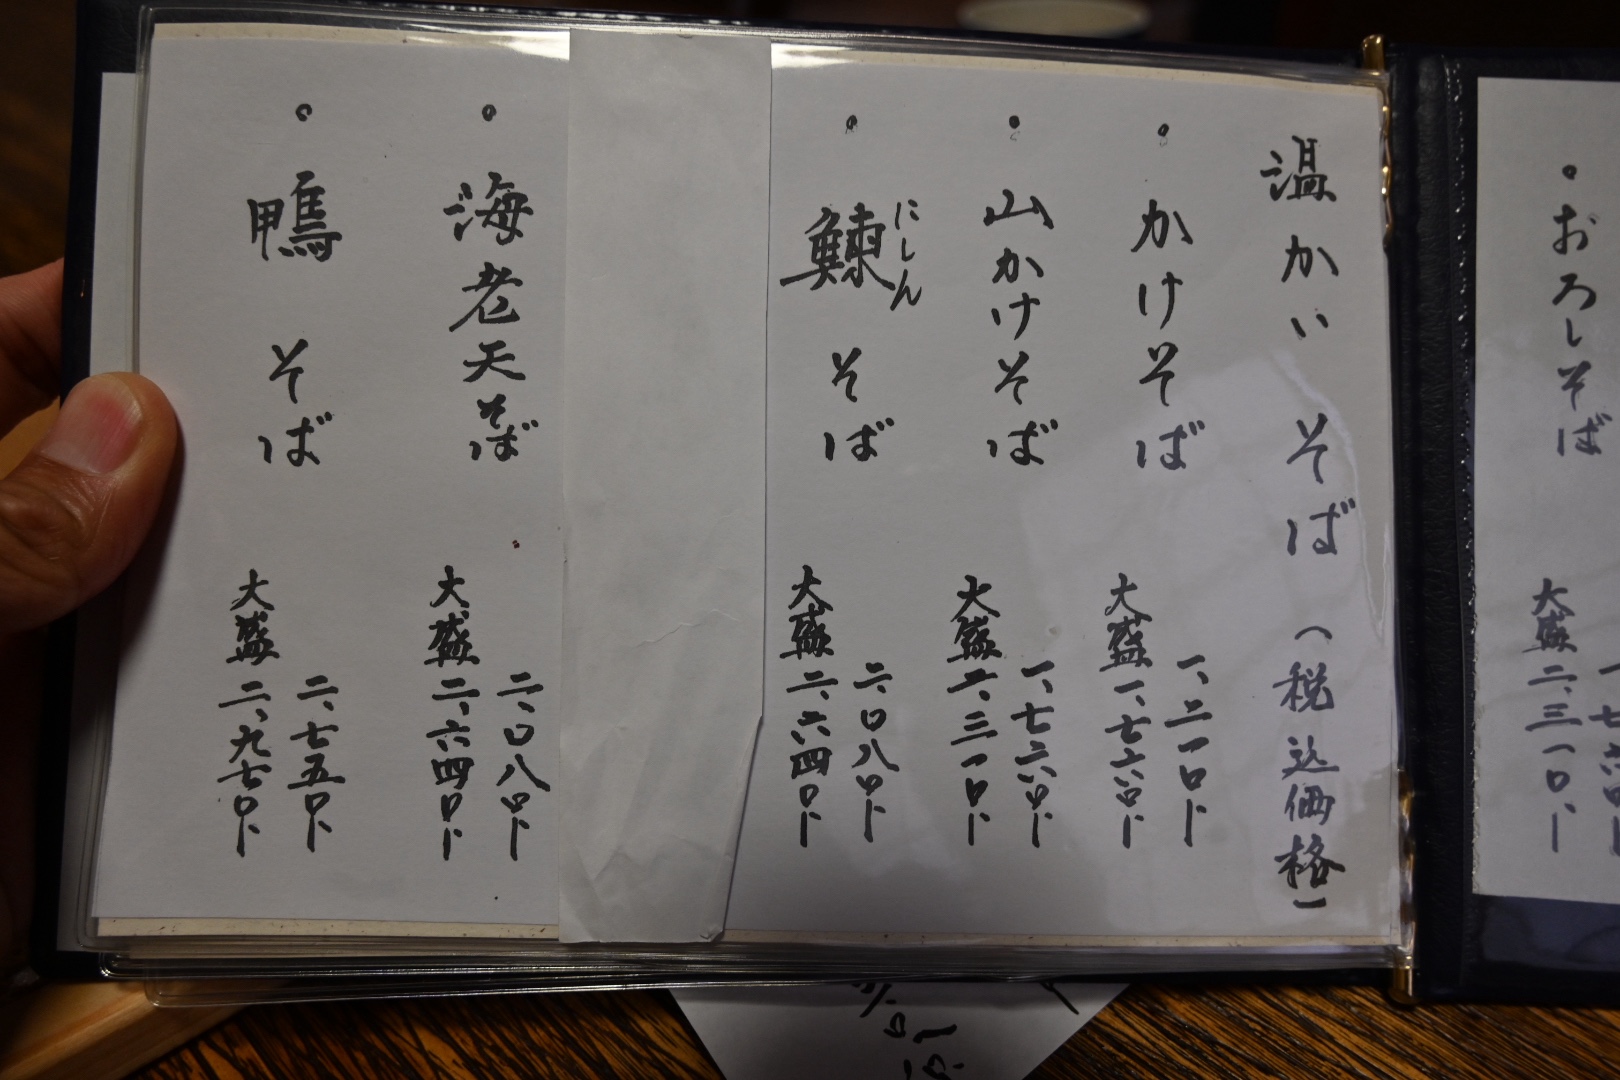 ・おろしそば
一、七六〇、ー
大盛 二、三一〇、ー
温かいそば(税込価格)
・かけそば
一、二一〇、ー
大盛 一、七六〇、ー
・山かけそば
一、七六〇、ー
大盛 二、三一〇、ー
にしん
・鰊そば
二、〇八〇、ー
大盛 二、六四〇、ー
・海老天そば
二、〇八〇、ー
大盛 二、六四〇、ー
・鴨そば
二、七五〇、ー
大盛 二、九七〇、ー